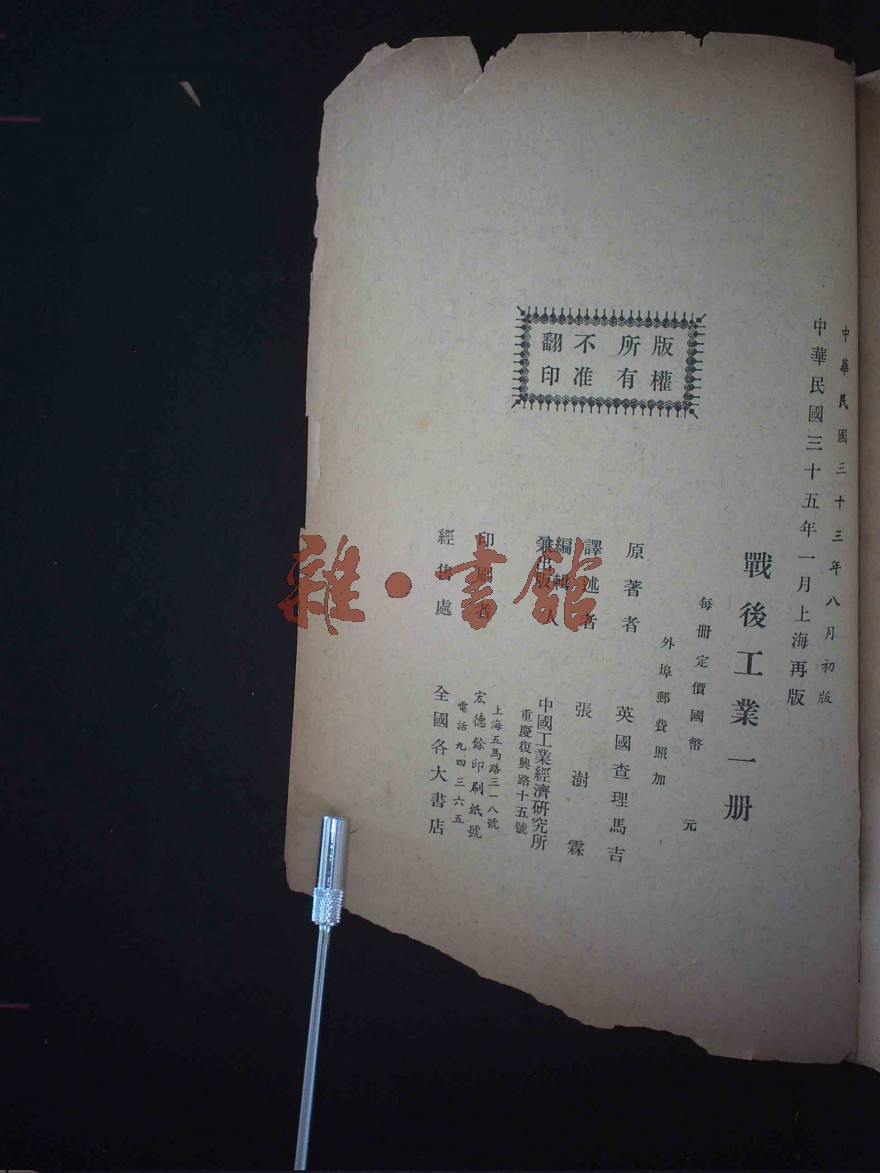 中華民國三十三年八月初版
中華民國三十五年一月上海再版
戰後工業一册
每册定價國幣　元
外埠郵費照加
版權所有
不准翻印
原著者　英國查理馬吉
譯述者　張澍霖
編輯兼出版人　中國工業經濟研究所
重慶復興路十五號
印刷者　宏德餘印刷紙號
上海五馬路三一八號
電話九四三六五
經售處　全國各大書店
雜·書館